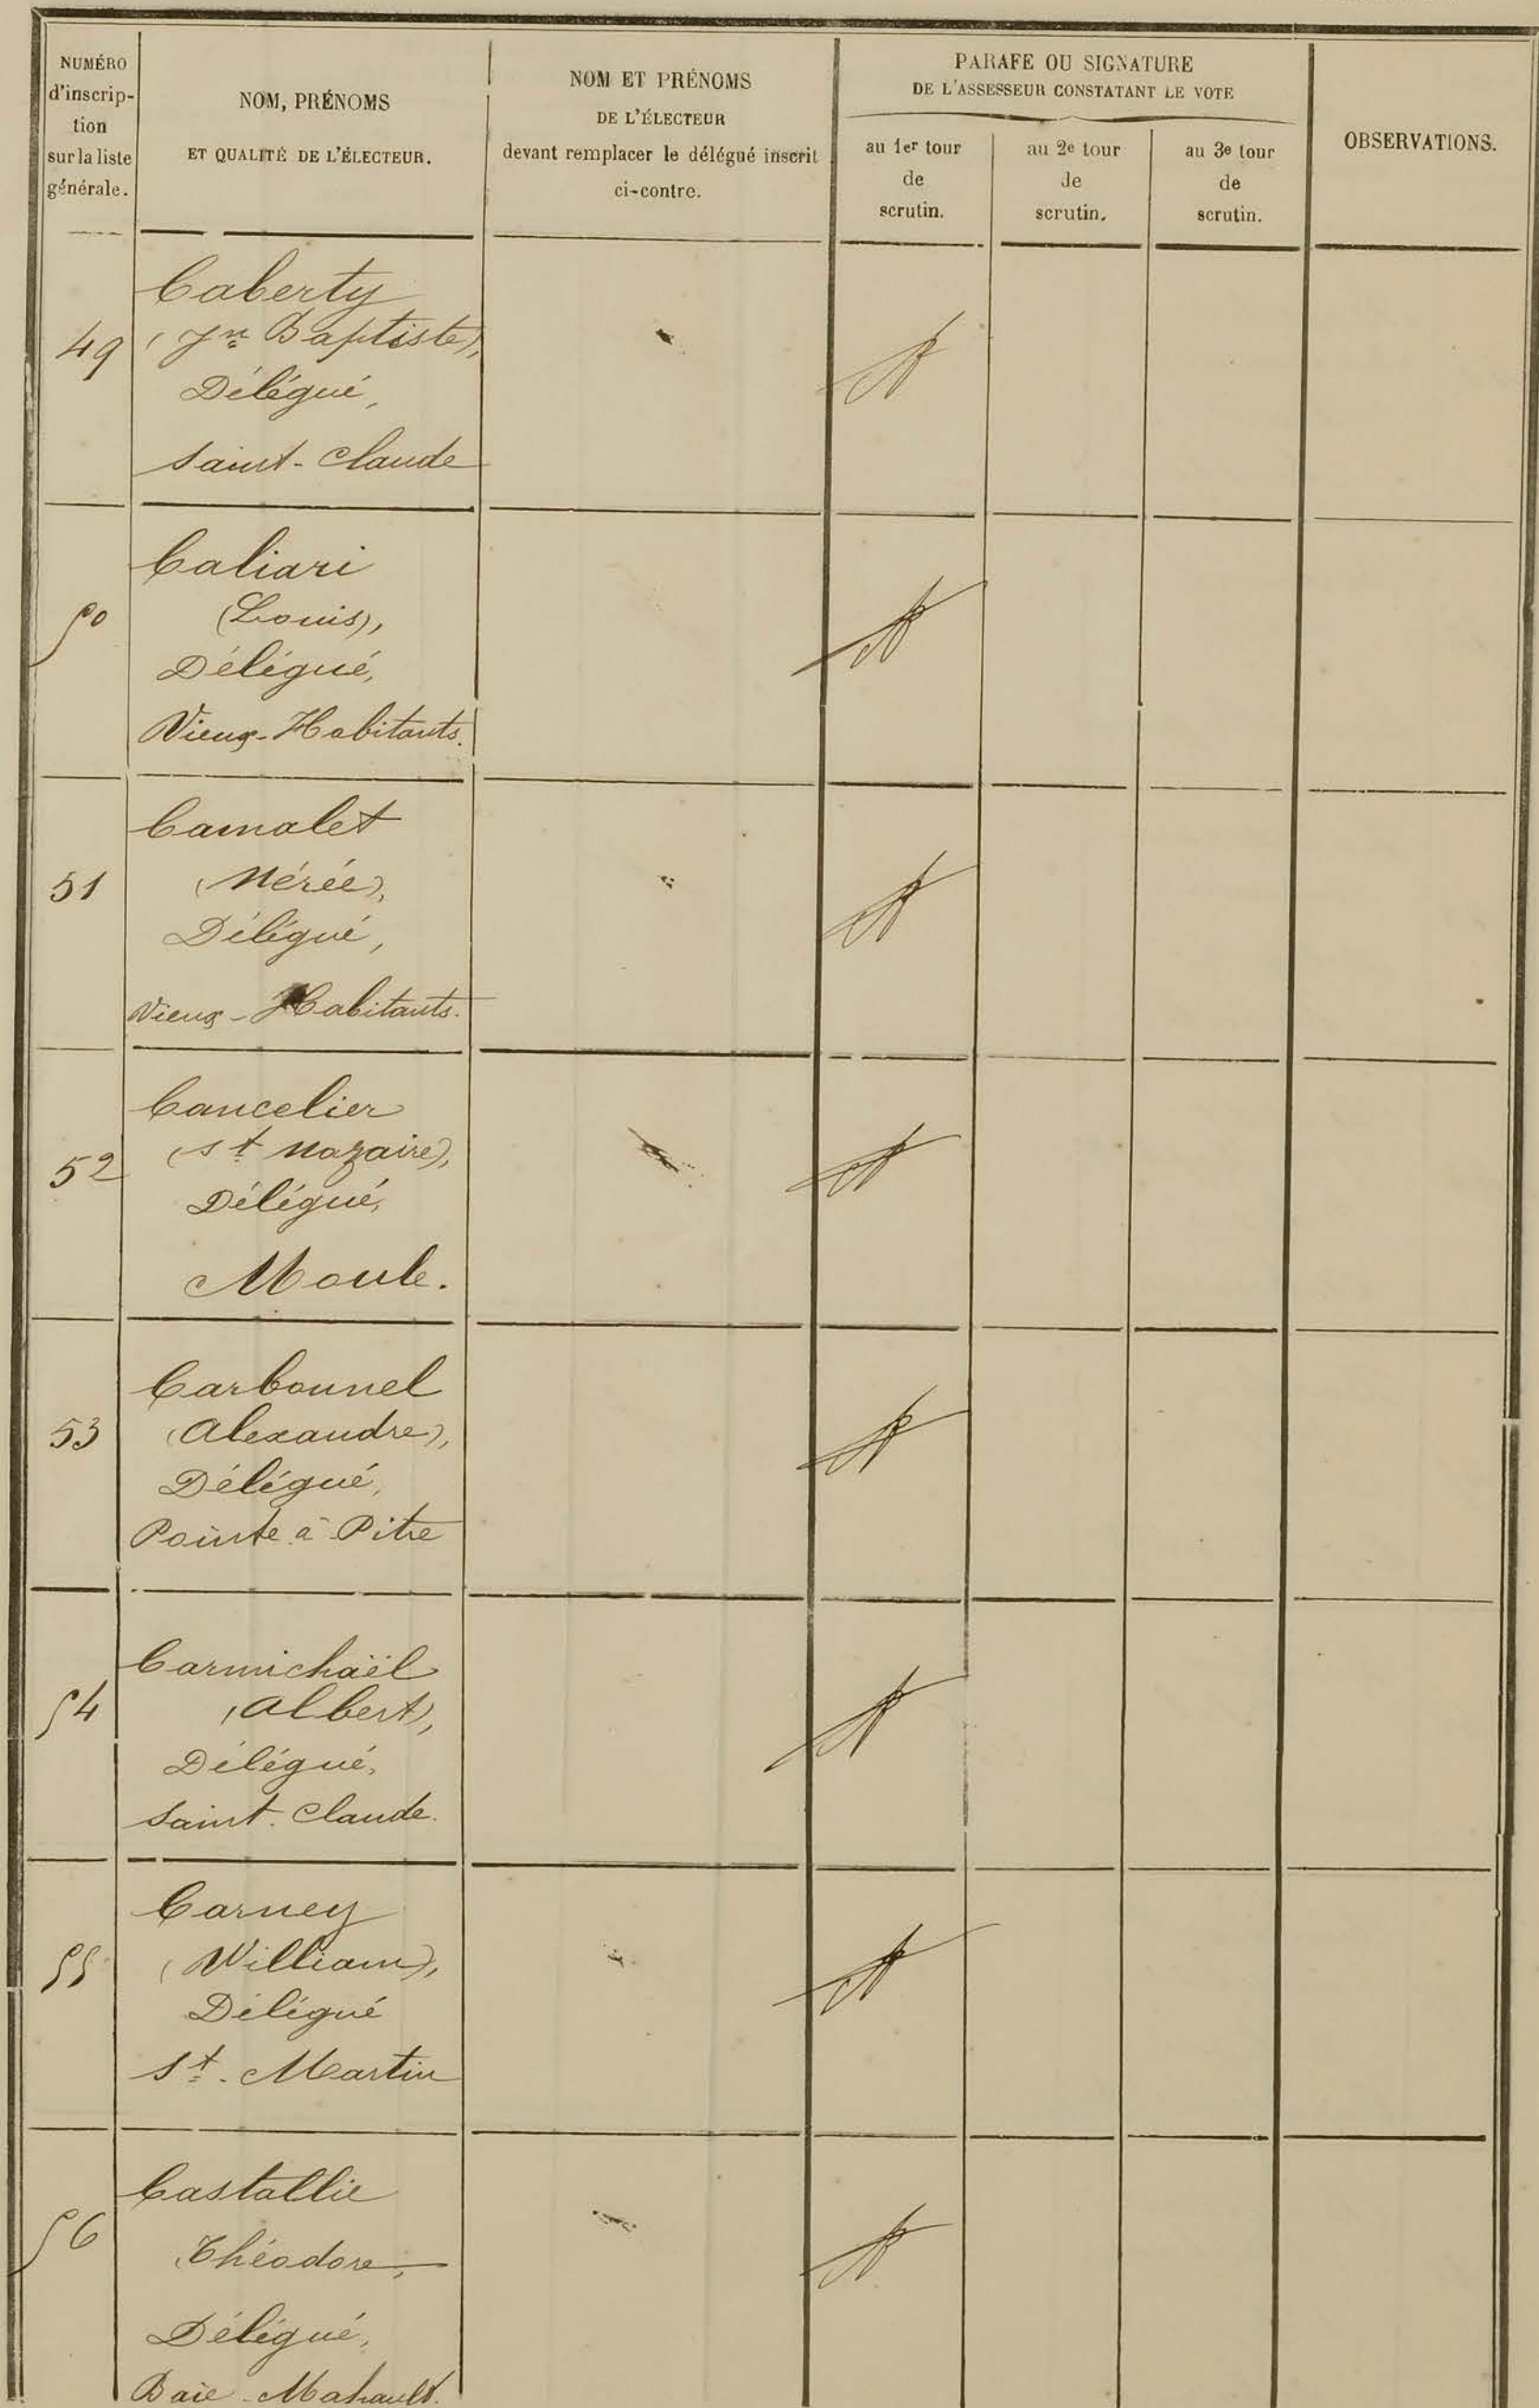 NUMÉRO
d'inscrip-
tion
sur la liste
générale.
NOM, PRÉNOMS
ET QUALITÉ DE L'ÉLECTEUR.
NOM ET PRÉNOMS
DE L'ÉLECTEUR
devant remplacer le délégué inscrit
ci-contre.
PARAFE OU SIGNATURE
DE L'ASSESSEUR CONSTATANT LE VOTE
au 1er tour
de
scrutin.
au 2e tour
de
scrutin.
au 3e tour
de
scrutin.
OBSERVATIONS.
49
Caberty
(Jn Baptiste),
Délégué,
Saint-Claude
50
Caliari
(Louis),
Délégué,
Vieux-Habitants.
51
Camalet
(Nérée),
Délégué,
Vieux-Habitants.
52
Cancelier
(St Nazaire),
Délégué,
Moule.
53
Carbonnel
(Alexandre),
Délégué,
Pointe à Pitre
54
Carmichaël
(Albert),
Délégué,
Saint-Claude.
55
Carney
(William),
Délégué
St. Martin
56
Castallie
Théodore,
Délégué,
Baie-Mahault.